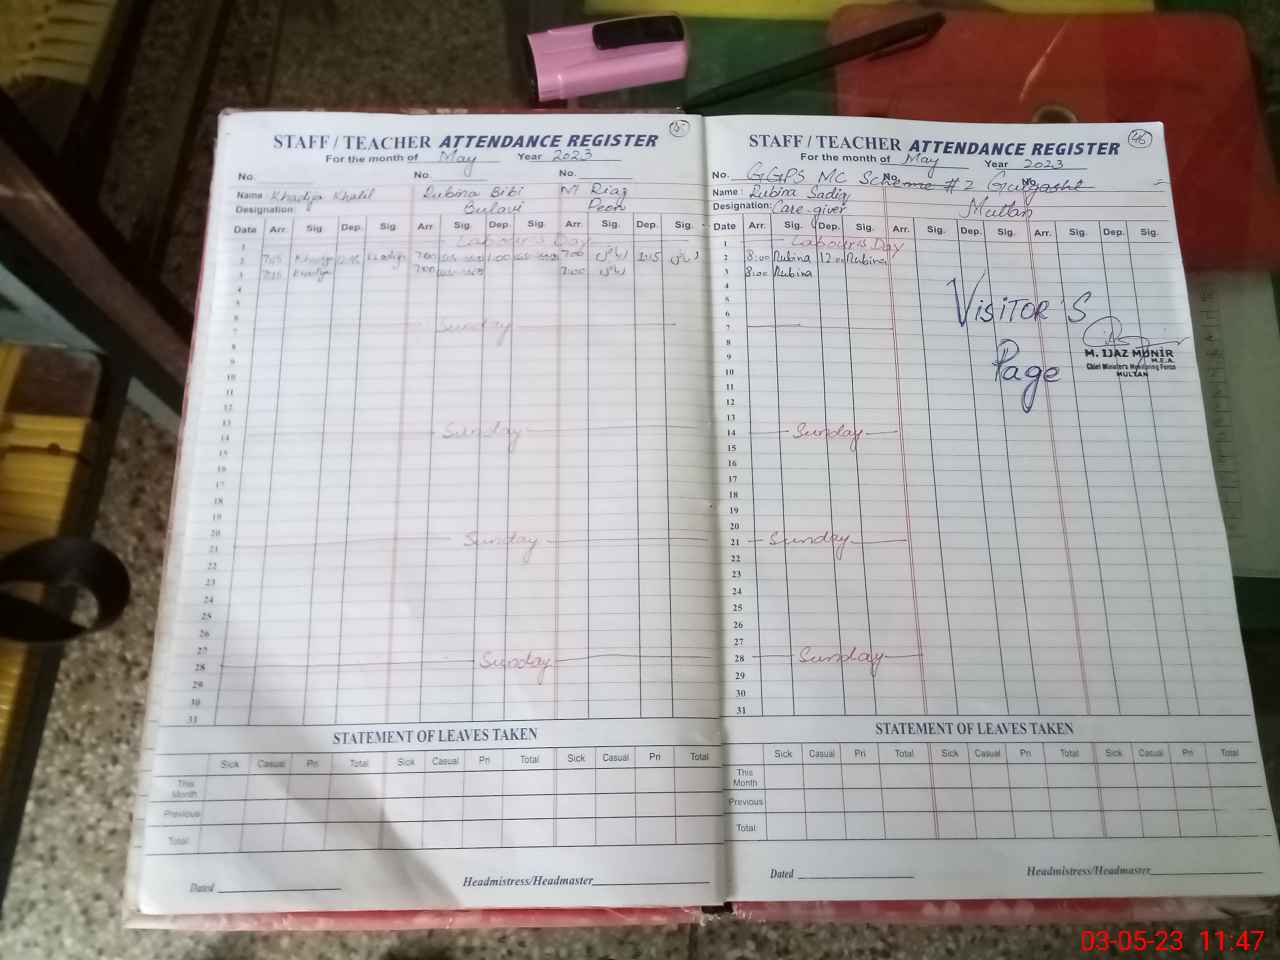 STAFF / TEACHER ATTENDANCE REGISTER
For the month of May Year 2023
No. No. No.
Name : Khadija Khalil Rubina Bibi M Riaz
Designation: Bulavi Peon
Date Arr. Sig. Dep. Sig Arr. Sig. Dep. Sig. Arr. Sig. Dep. Sig.
1 Labour's Day
2 7:45 Khadija Khadija 7:00 1:00 7:00 ریاض 1:15 ریاض
3 7:45 Khadija 7:00 7:00 ریاض
4
5
6
7 Sunday
8
9
10
11
12
13
14 Sunday
15
16
17
18
19
20
21 Sunday
22
23
24
25
26
27
28 Sunday
29
30
31
STATEMENT OF LEAVES TAKEN
Sick Casual Pri Total Sick Casual Pri Total Sick Casual Pri Total
This Month
Previous
Total
Dated Headmistress/Headmaster
46
STAFF / TEACHER ATTENDANCE REGISTER
For the month of May Year 2023
No. GGPS MC Scheme # 2 Gulgasht
No. No.
Name : Rubina Sadiq Multan
Designation: Care-giver
Date Arr. Sig. Dep. Sig. Arr. Sig. Dep. Sig. Arr. Sig. Dep. Sig.
1 Labour's Day
2 8:00 Rubina 12:00 Rubina
3 8:00 Rubina
4
5
6
7
8
9
10
11
12
13
14 Sunday
15
16
17
18
19
20
21 Sunday
22
23
24
25
26
27
28 Sunday
29
30
31
VISITOR'S
Page
M. IJAZ MUNIR
M.E.A.
Chief Minister's Monitoring Force
MULTAN
STATEMENT OF LEAVES TAKEN
Sick Casual Pri Total Sick Casual Pri Total Sick Casual Pri Total
This Month
Previous
Total
Dated Headmistress/Headmaster
03-05-23 11:47